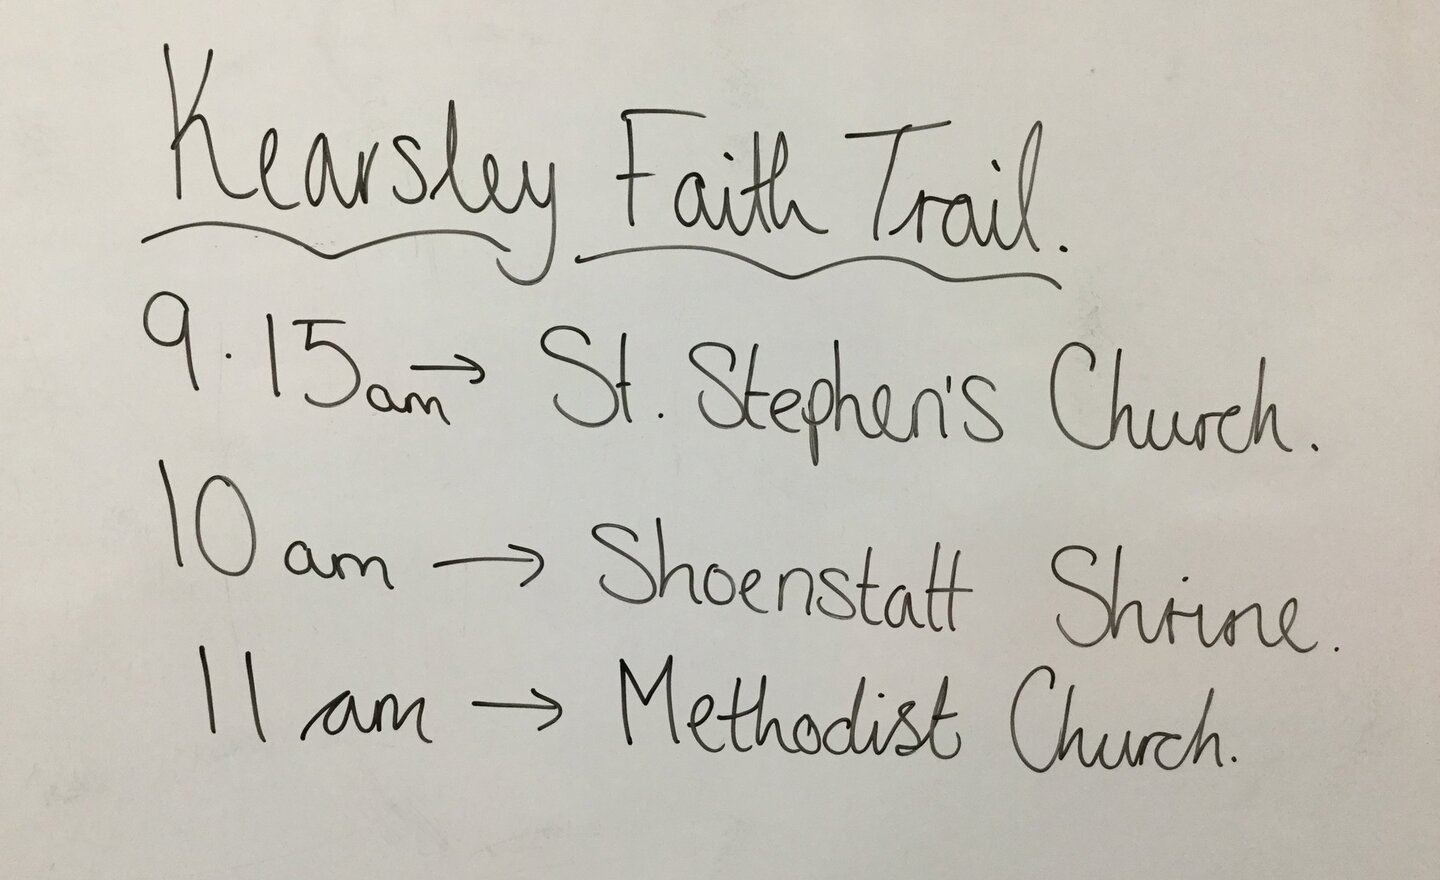 Kearsley Faith Trail.
9.15am → St. Stephen's Church.
10 am → Shoenstatt Shrine.
11 am → Methodist Church.